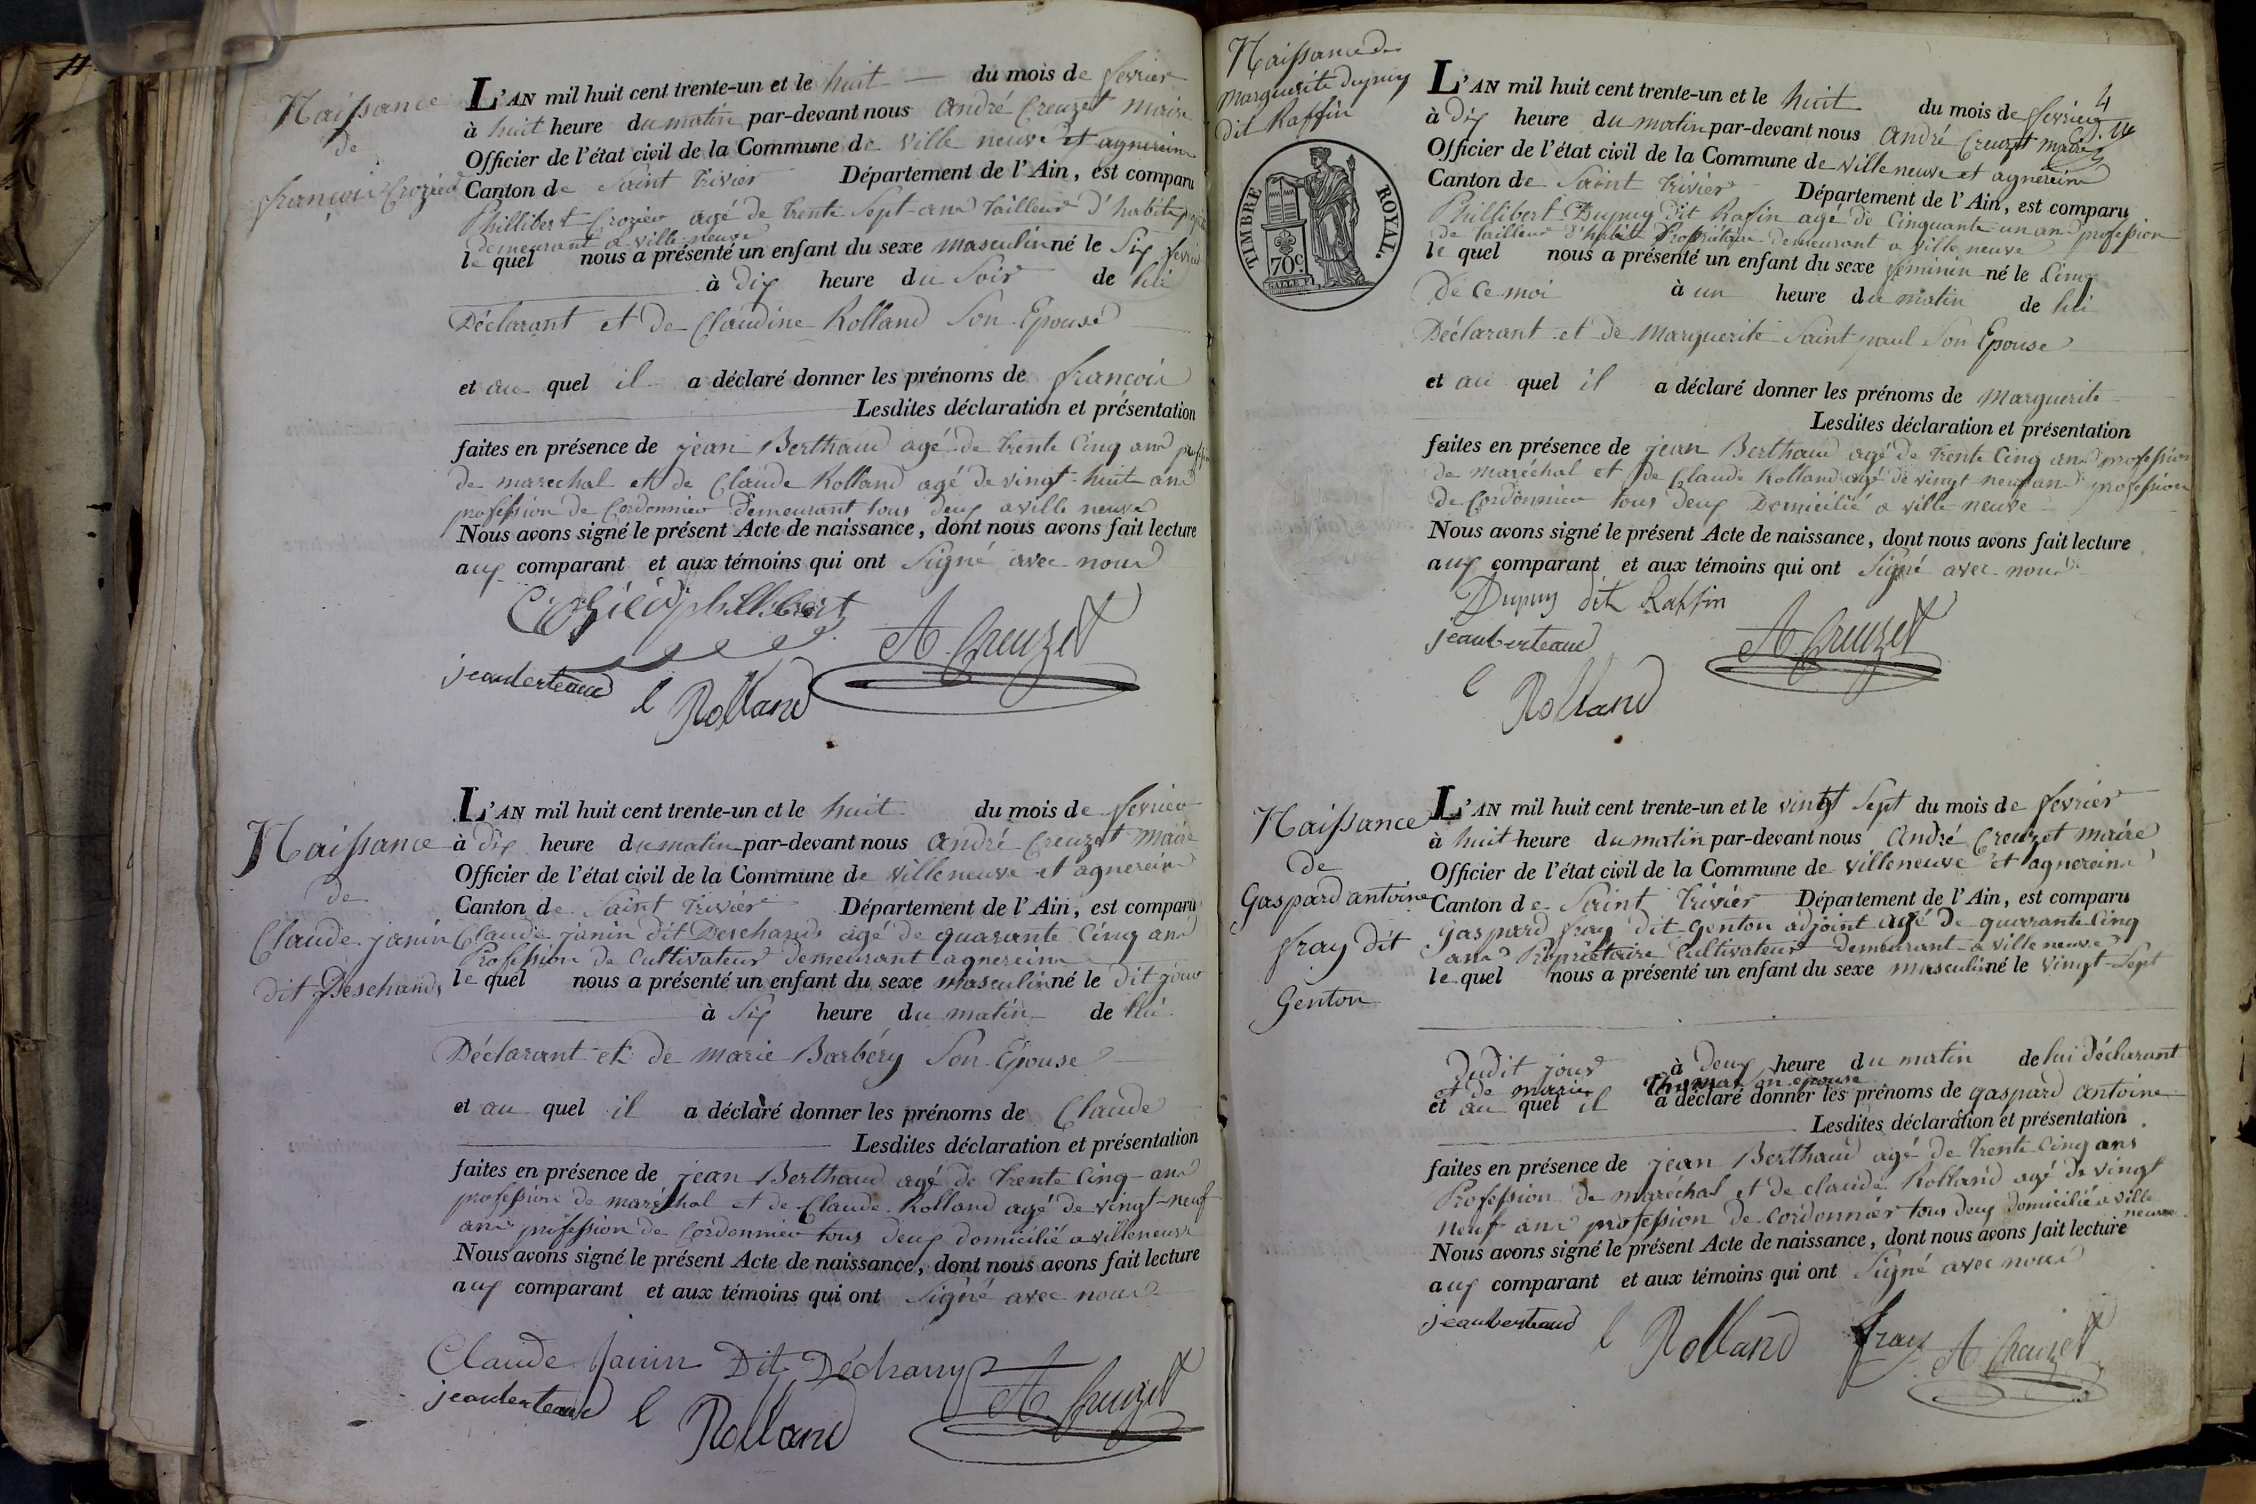 Naissance
de
françois Crozier
L'AN mil huit cent trente-un et le huit du mois de fevrier
à huit heure du matin par-devant nous andré Creuzet maire
Officier de l'état civil de la Commune de ville neuve et agnereins
Canton de Saint trivier Département de l'Ain, est comparu
Phillibert Crozier agé de trente Sept ans tailleur d'habits
demeurant a ville neuve
le quel nous a présenté un enfant du sexe masculin né le Six fevrier
à dix heure du Soir de lui
Déclarant et de Claudine Rolland Son Epouse
et au quel il a déclaré donner les prénoms de françois
Lesdites déclaration et présentation
faites en présence de jean Berthaud agé de trente Cinq ans
de marechal et de Claude Rolland agé de vingt-huit ans
profession de Cordonnier demeurant tous deux a ville neuve
Nous avons signé le présent Acte de naissance, dont nous avons fait lecture
aux comparant et aux témoins qui ont Signé avec nous
Crozier phillibert
A Creuzet
jean berteaud
C Rolland
Naissance
de
Claude janin
dit Deschands
L'AN mil huit cent trente-un et le huit du mois de fevrier
à dix heure du matin par-devant nous andré Creuzet maire
Officier de l'état civil de la Commune de villeneuve et agnereins
Canton de Saint trivier Département de l'Ain, est comparu
Claude janin dit Deschands agé de quarante Cinq ans
Profession de Cultivateur demeurant agnereins
le quel nous a présenté un enfant du sexe masculin né le dit jour
à Six heure du matin de lui
Déclarant et de marie Barbéry Son Epouse
et au quel il a déclaré donner les prénoms de Claude
Lesdites déclaration et présentation
faites en présence de jean Berthaud agé de trente Cinq ans
profession de maréchal et de Claude Rolland agé de vingt-neuf
ans profession de Cordonnier tous deux domicilié a villeneuve
Nous avons signé le présent Acte de naissance, dont nous avons fait lecture
aux comparant et aux témoins qui ont Signé avec nous
Claude Janin Dit Déchamp
jean berteaud
C Rolland
A Creuzet
Naissance de
marguerite Dupuy
dit Raffin
TIMBRE ROYAL.
70c.
4
L'AN mil huit cent trente-un et le huit du mois de fevrier
à dix heure du matin par-devant nous andré Creuzet maire
Officier de l'état civil de la Commune de villeneuve et agnereins
Canton de Saint trivier Département de l'Ain, est comparu
Phillibert Dupuy dit Rafin agé de Cinquante un ans profession
de tailleur d'habits Propriétaire demeurant a ville neuve
le quel nous a présenté un enfant du sexe féminin né le Cinq
de ce moi à un heure du matin de lui
Déclarant et de Marguerite Saint paul Son Epouse
et au quel il a déclaré donner les prénoms de Marguerite
Lesdites déclaration et présentation
faites en présence de jean Berthaud agé de trente Cinq ans profession
de maréchal et de Claude Rolland agé de vingt neuf ans profession
de Cordonnier tous deux Domicilié a ville neuve
Nous avons signé le présent Acte de naissance, dont nous avons fait lecture
aux comparant et aux témoins qui ont Signé avec nous
Dupuy dit Raffin
jean berteaud
A Creuzet
C Rolland
Naissance
de
Gaspard antoine
fray dit
Genton
L'AN mil huit cent trente-un et le vingt Sept du mois de fevrier
à huit heure du matin par-devant nous André Creuzet maire
Officier de l'état civil de la Commune de villeneuve et agnereins
Canton de Saint trivier Département de l'Ain, est comparu
gaspard fray dit genton adjoint agé de quarante Cinq
ans Propriétaire Cultivateur demeurant a villeneuve
le quel nous a présenté un enfant du sexe masculin né le vingt-Sept
dudit jour à deux heure du matin de lui déclarant
et de marie Thomas Son epouse
et au quel il a déclaré donner les prénoms de gaspard antoine
Lesdites déclaration et présentation
faites en présence de jean Berthaud agé de trente Cinq ans
Profession de maréchal et de claude Rolland agé de vingt
neuf ans profession de Cordonnier tous deux domicilié a ville
neuve
Nous avons signé le présent Acte de naissance, dont nous avons fait lecture
aux comparant et aux témoins qui ont Signé avec nous
jean berteaud
C Rolland fray A Creuzet